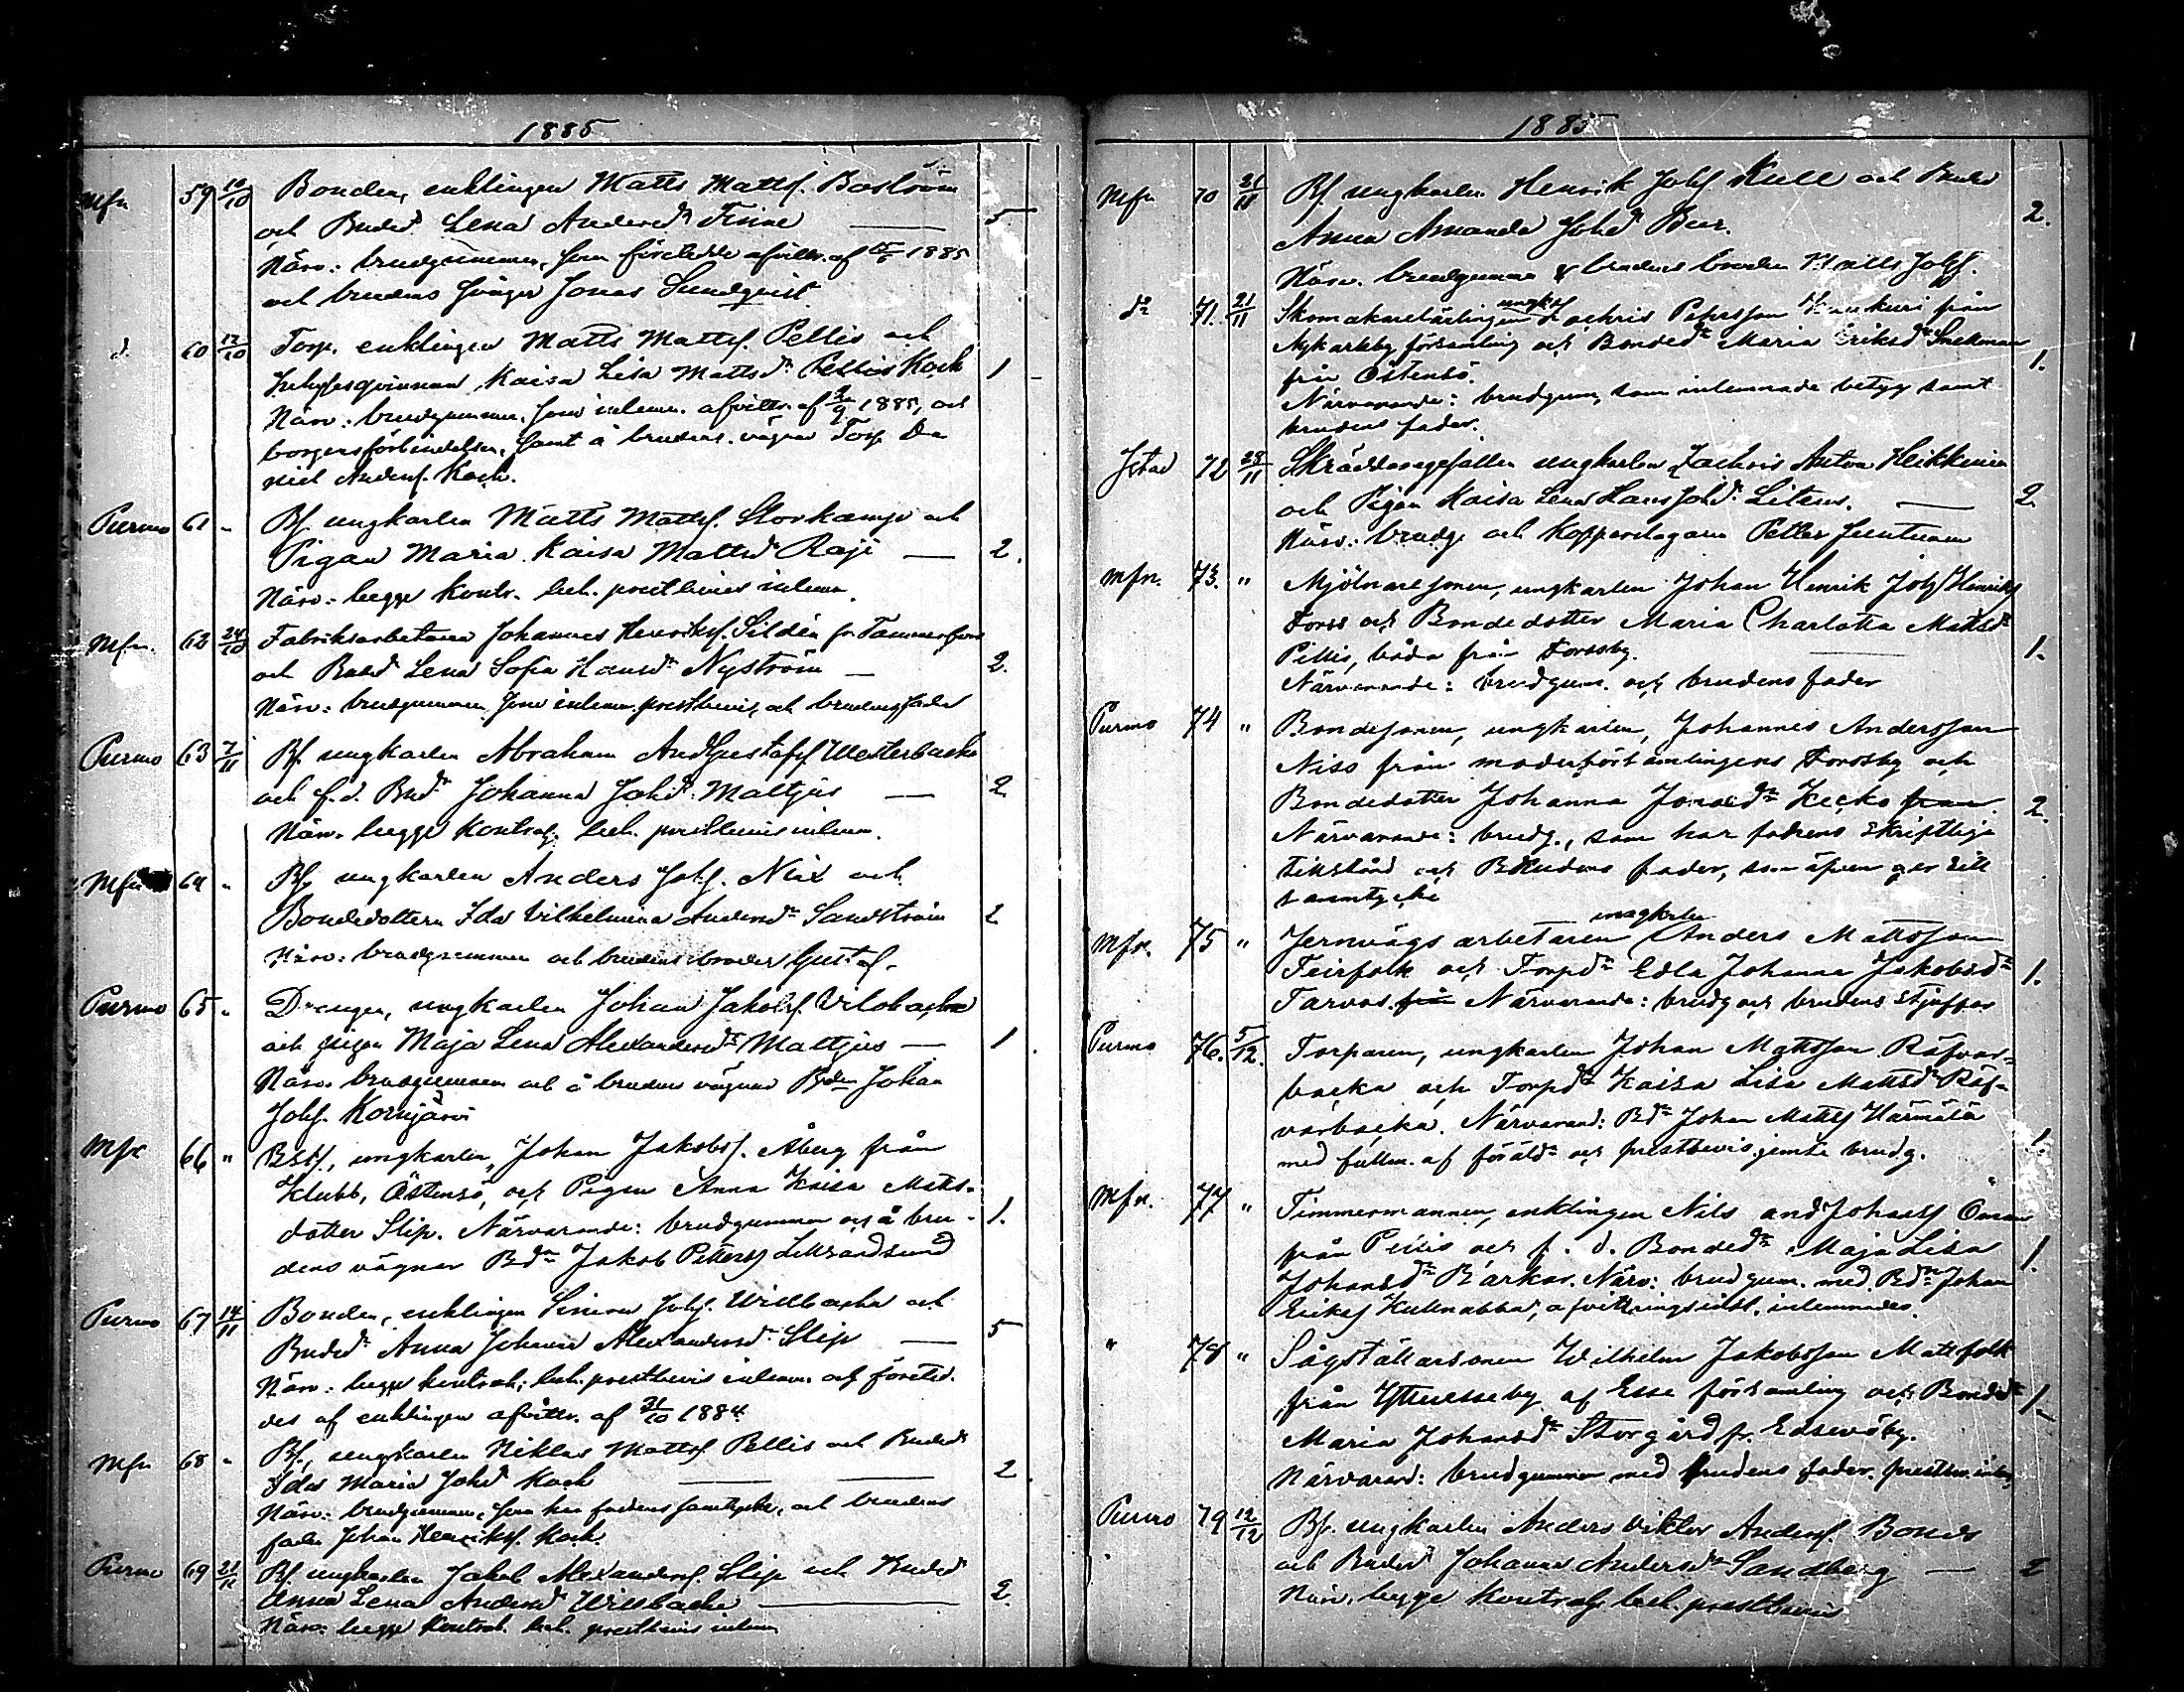 1885
Mfn 59 10/10 Bonden, enklingen Matts Mattsf. Boström
och Bndsd Lena Andersdr Finne — 5
Närv: brudgummen, som företedde afvittr. af 1885
och brudens svåger Jonas Sundqvist.
d. 60 12/10 Torp. enklingen Matts Mattsf. Pellis och
Inhysesqvinnan Kaisa Lisa Mattsdr Pellis Koch 1 -
Närv: brudgummen, som inlemn. afvittr. af 1885, och
borgensförbindelse, samt å brudens vägnar Torp. Da
niel Andersf. Koch.
Purmo 61 " Bf. ungkarlen Matts Mattsf. Storkamp och
Pigan Maria Kaisa Mattsdr Raji — 2.
Närv: begge kontr. beh. prestbevis inlemn.
Mfn. 62 24/10 Fabriksarbetaren Johannes Henriksf. Sildén fr. Tammerfors
och Bndsd Lena Sofia Hansdr Nyström — 2.
Närv: brudgummen som inlemn. prestbevis, och brudens fader
Purmo 63 7/11 Bf. ungkarlen Abraham And. Gustafsf. Westerbacka
och f.d. Bndr Johanna Johdr Maltjus — 2
Närv. begge kontrah. beh. prestbevis inlemn.
Mfn 64 " Bf. ungkarlen Anders Johf. Nix och
Bondedottern Ida Vilhelmina Andersdr Sandström 2
Närv: brudgummen och brudens broder Gustaf.
Purmo 65 " Drengen, ungkarlen Johan Jakobsf. Wilobacka
och pigan Maja Lena Alexandersdr Maltjus — 1.
Närv. brudgummen och å brudens vägnar Bden Johan
Johf. Kornjärvi
Mfn 66 " Bdsf., ungkarlen, Johan Jakobsf. Åberg från
Klubb, Östensö, och Pigan Anna Kaisa Matts-
dotter Slip. Närvarande: brudgummen och å bru- 1.
dens vägnar Bdn Jakob Petterss Lillsandsund
Purmo 67 14/11 Bonden, enklingen Simon Johf. Willbacka och
Bndsdr Anna Johanna Alexandersdr Slip — 5
Närv: begge kontrah; beh. prestbevis inlemn. och företed-
des af enklingen afvittr. af 21/10 1884.
Mfn 68 " Bf., ungkarlen Niklas Mattsf. Pellis och Bndsdr
Ida Maria Johdr Koch — — 2.
Närv: brudgummen, som har fadrens samtycke, och brudens
fader Johan Henriksf. Koch.
Purmo 69 21/11 Bf. ungkarlen Jakob Alexandersf. Slip och Bndsdr
Anna Lena Andersdr Willbacka — 2.
Närv: begge kontrah. beh. prestbevis inlemn
1885
Mfn 70 21/11 Bf. ungkarlen Henrik Johf. Kull och Bndsd
Anna Amanda Johdr Beer. 2.
Närv. brudgummen & brudens broder Matts Johf.
do 71. 21/11 Skomakarelärlingen ungk. Zachris Pehrsson från
Nykarleby församling och Bondedr Maria Eriksdr Snellman
från Östensö. 1.
Närvarande: brudgum, som inlemnade betyg samt
brudens fader.
Jstad 72 28/11 Skräddaregesällen ungkarlen Zachris Anton Heikkinen
och Pigan Kaisa Lena Hans Johdr Litens. — 2
Närv: brudg. och Kopparslagaren Petter Juntunen
Mfn. 73. " Mjölnaresonen, ungkarlen Johan Henrik Joh Henriks
Forss och Bondedotter Maria Charlotta Mattsdr
Pellis, båda från Forssby. — 1.
Närvarande: brudgum. och brudens fader
Purmo 74 " Bondesonen, ungkarlen, Johannes Andersson
Niss från moderförsamlingens Forssby och
Bondedotter Johanna Jonasdr Kecko från 2.
Närvarande: brudg., som har fadrens skriftliga
tillstånd och Brudens fader, som äfven ger sitt
samtycke
Mfn. 75 " Jernvägsarbetaren ungkarlen Anders Mattsson
Feirfolk och Torpdr Edla Johanna Jakobsdr 1.
Tarvos från Närvarande: brudg och brudens styffar
Purmo 76. 5/12. Torparen, ungkarlen Johan Mattsson Räfvar-
backa och Torpdr Kaisa Lisa Mattsdr Räf-
varbacka. Närvarand: Bdn Johan Mattss Härmälä
med fullm. af föräldr och prestbevis jemte brudg. 1.
Mfn. 77 " Timmermannen, enklingen Nils And Johanss Öman
från Pellis och f.d. Bondedr Maja Lisa 1.
Johansdr Barkar. Närv: brudgum. med Bdn Johan
Erikss Kullnabba, afvittringsinst. inlemnades.
" 78 " Sågställarsonen Wilhelm Jakobsson Mattfolk
från Ytteresseby af Esse församling och Bondedr 1.
Maria Johansdr Storgård fr. Edsevöby.
Närvarand: brudgummen med brudens fader. prestbev. inlem.
Purmo 79 12/12 Bf. ungkarlen Anders Viktor Andersf. Bonds
och Bndsdr Johanna Andersdr Sandberg — 2
Närv. begge kontrah. beh. prestbevis